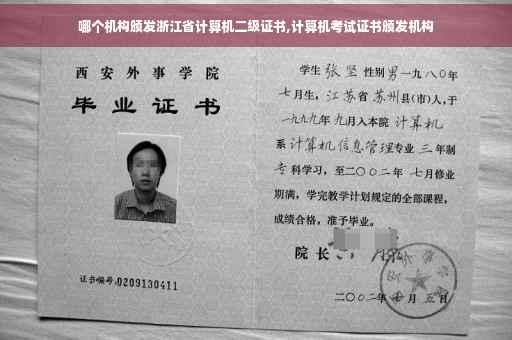 哪个机构颁发浙江省计算机二级证书,计算机考试证书颁发机构
西安外事学院
毕业证书
证书编号:0209130411
学生 张坚 性别 男 一九八〇年
七月生，江苏省 苏州县(市)人，于
一九九九年 九月入本院 计算机
系 计算机信息管理 专业 三 年制
专 科学习，至二〇〇二年 七月修业
期满，学完教学计划规定的全部课程，
成绩合格，准予毕业。
院长
二〇〇二年 月 五日